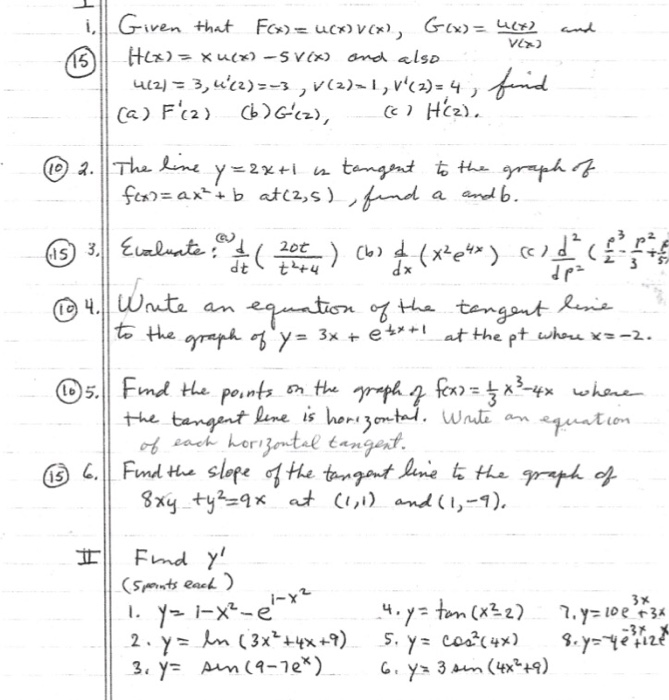 I
1. Given that F(x) = u(x) v(x), G(x) = u(x)/v(x) and
(15) H(x) = x u(x) - 5 v(x) and also
u(2) = 3, u'(2) = -3, v(2) = 1, v'(2) = 4, find
(a) F'(2) (b) G'(2), (c) H'(2).
(10) 2. The line y = 2x+1 is tangent to the graph of
f(x) = ax² + b at (2,5), find a and b.
(15) 3. Evaluate: (a) d/dt (20t/(t²+4)) (b) d/dx (x²e^(4x)) (c) d²/dp² (p³/2 - p²/3 +
(10) 4. Write an equation of the tangent line
to the graph of y = 3x + e^(½x+1) at the pt where x = -2.
(10) 5. Find the points on the graph of f(x) = ⅓x³-4x where
the tangent line is horizontal. Write an equation
of each horizontal tangent.
(15) 6. Find the slope of the tangent line to the graph of
8xy + y² = 9x at (1,1) and (1,-9).
II Find y'
(5 points each)
1. y = 1-x²-e^(1-x²) 4. y = tan(x²-2) 7. y = 10e^(3x)+3x
2. y = ln(3x²+4x+9) 5. y = cos²(4x) 8. y = -4e^(-3x)+12e^x
3. y = sin(9-7e^x) 6. y = 3 sin(4x²+9)